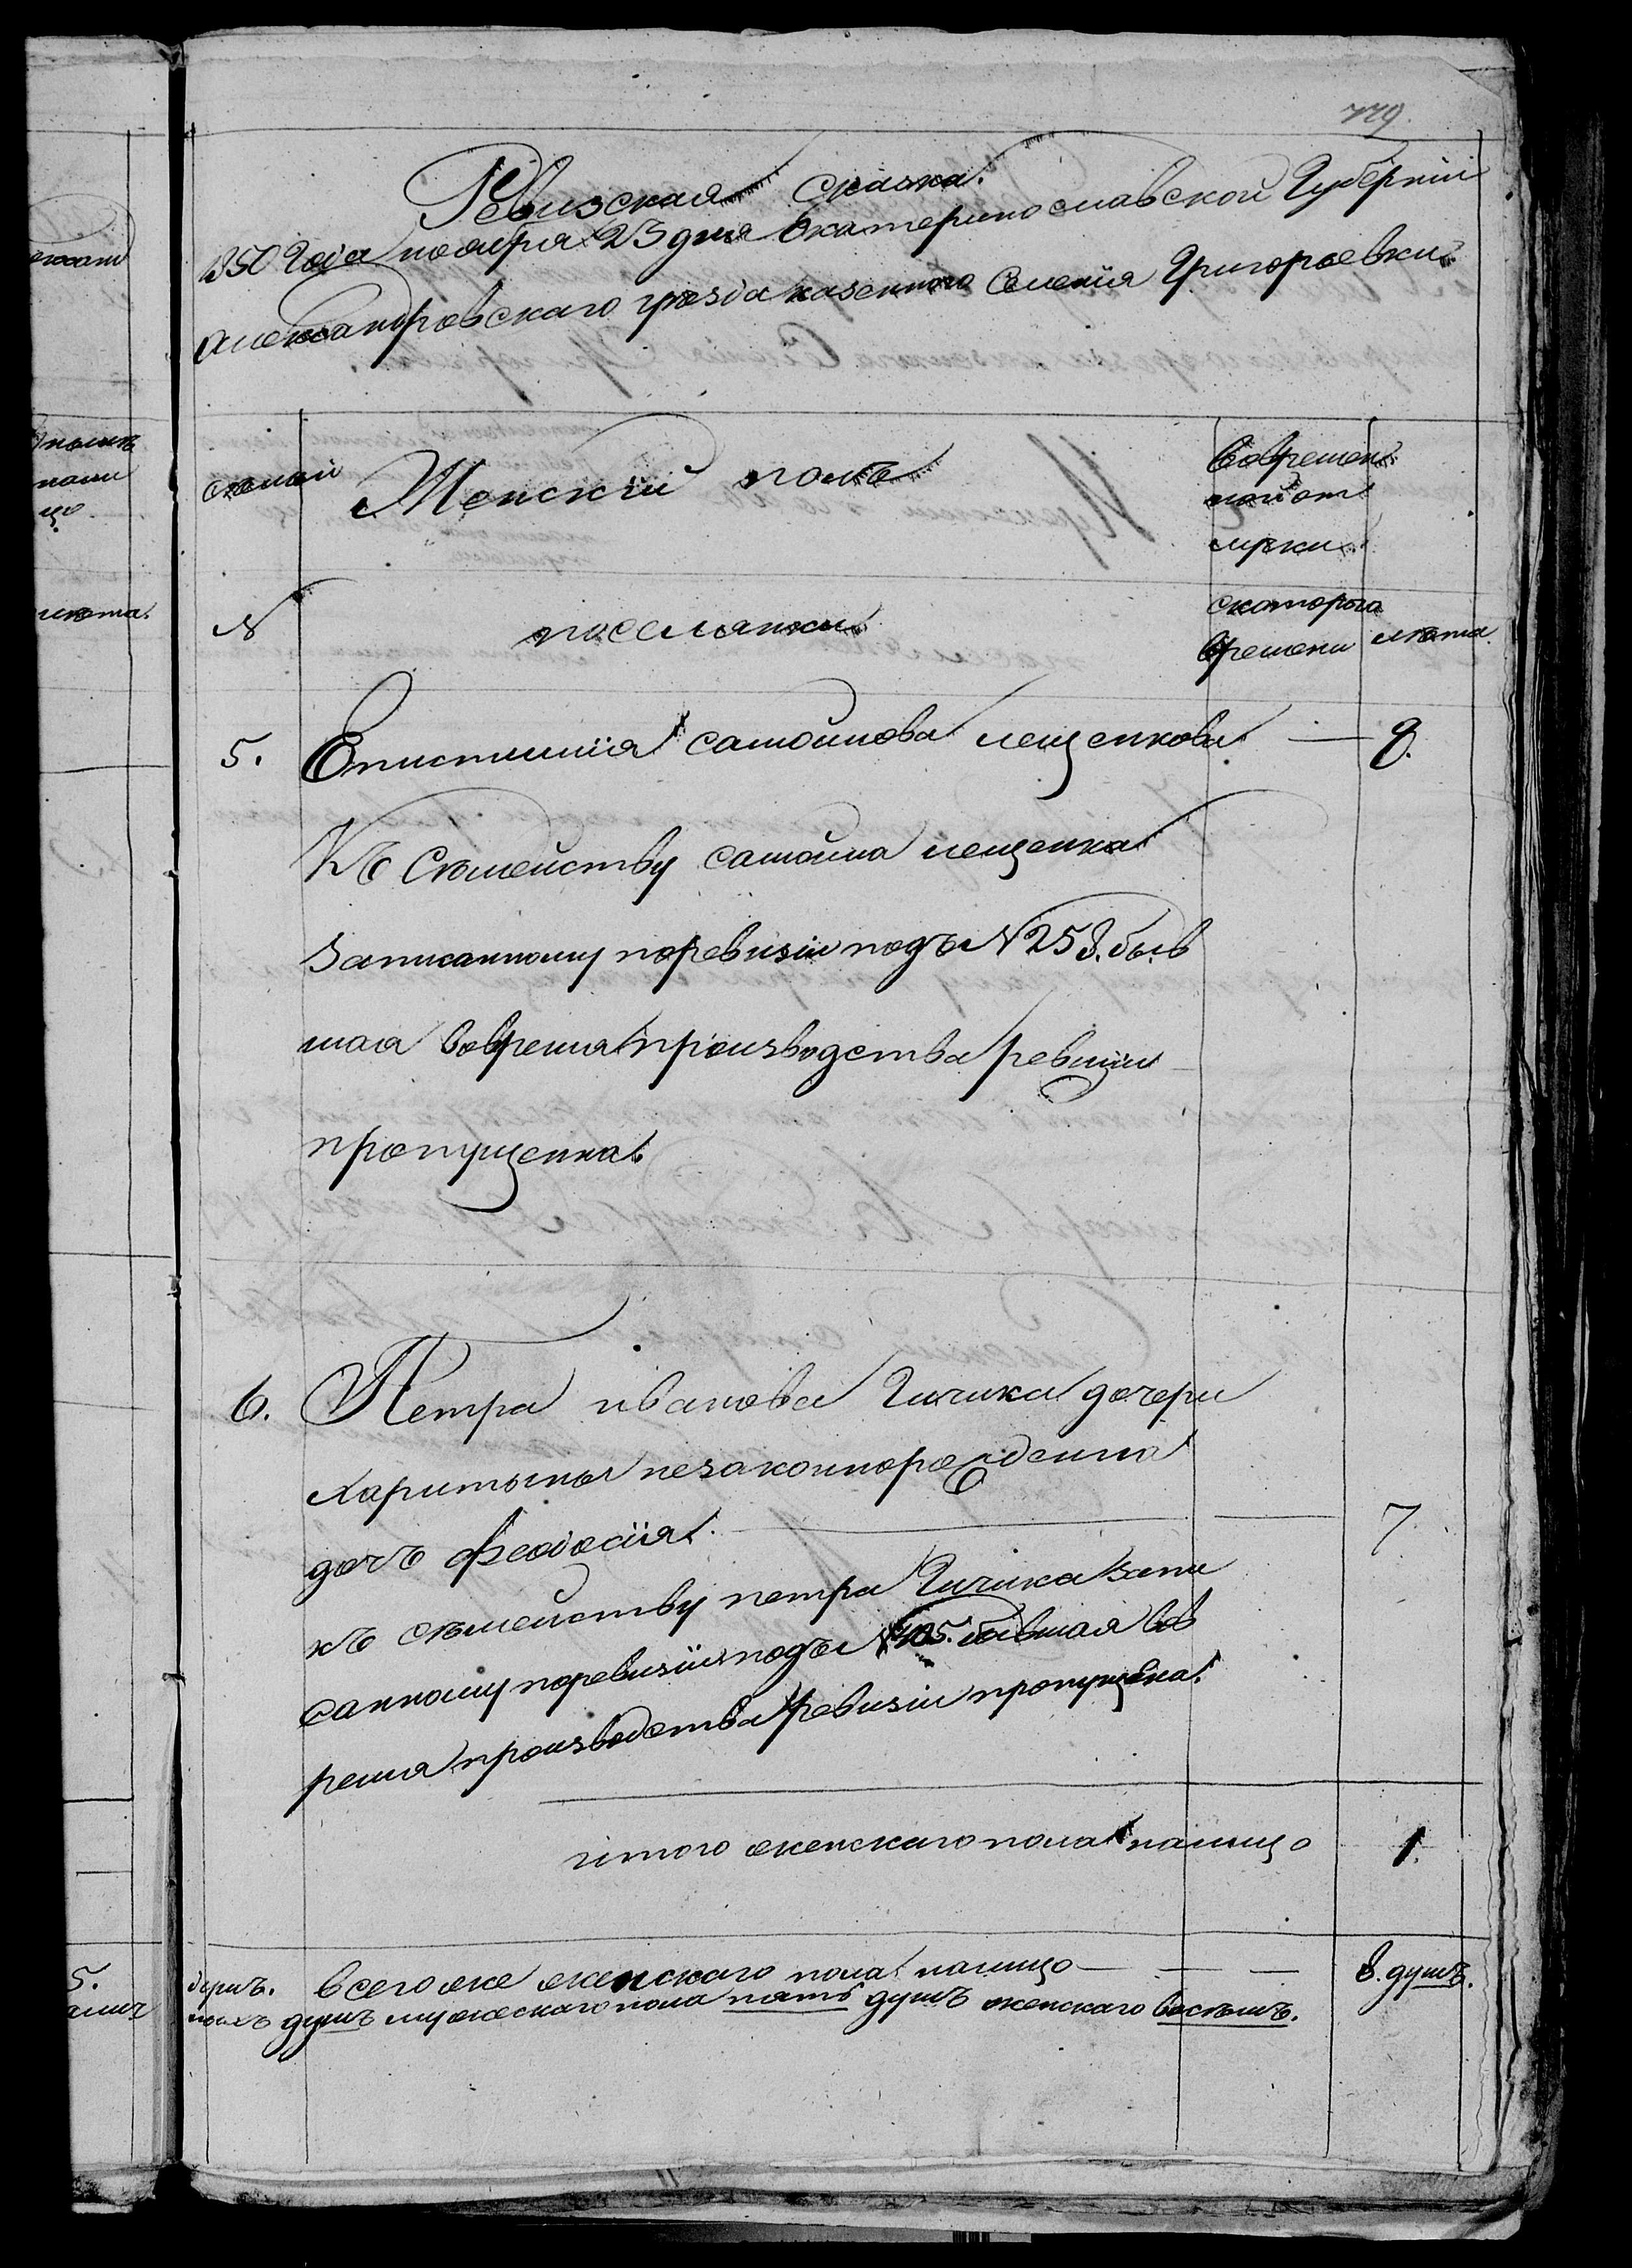 779.
Ревизская сказка.
1850 Года ноября 25 дня Екатеринославской Губерніи
александровскаго уѣзда казеннаго Селенія Григорьевки.
Женскій полъ
Вовремен
ной от
лучки
№
поселянки
скоторого
времени
лѣта.
5. Епистиміия самойлова лещенкова — 8.
Къ Сѣмейству самойла лещенка
Записанному поревизіи подъ № 258. быв
шая вовремя производства ревизіи
пропущенна.
6. Петра иванова Чичика дочери
харитыны незаконнорожденна
дочъ Феодосіия. 7.
къ сѣмейству петра Чичика запи
санному поревизіи подъ № 405. бывшая вов
ремя производства ревизіи пропущена.
итого женскаго пола налицо 1.
душъ. всего же женскаго пола налицо — — — 8. душъ.
душъ мужескаго пола пять душъ женскаго восѣмъ.
лѣта.
5.